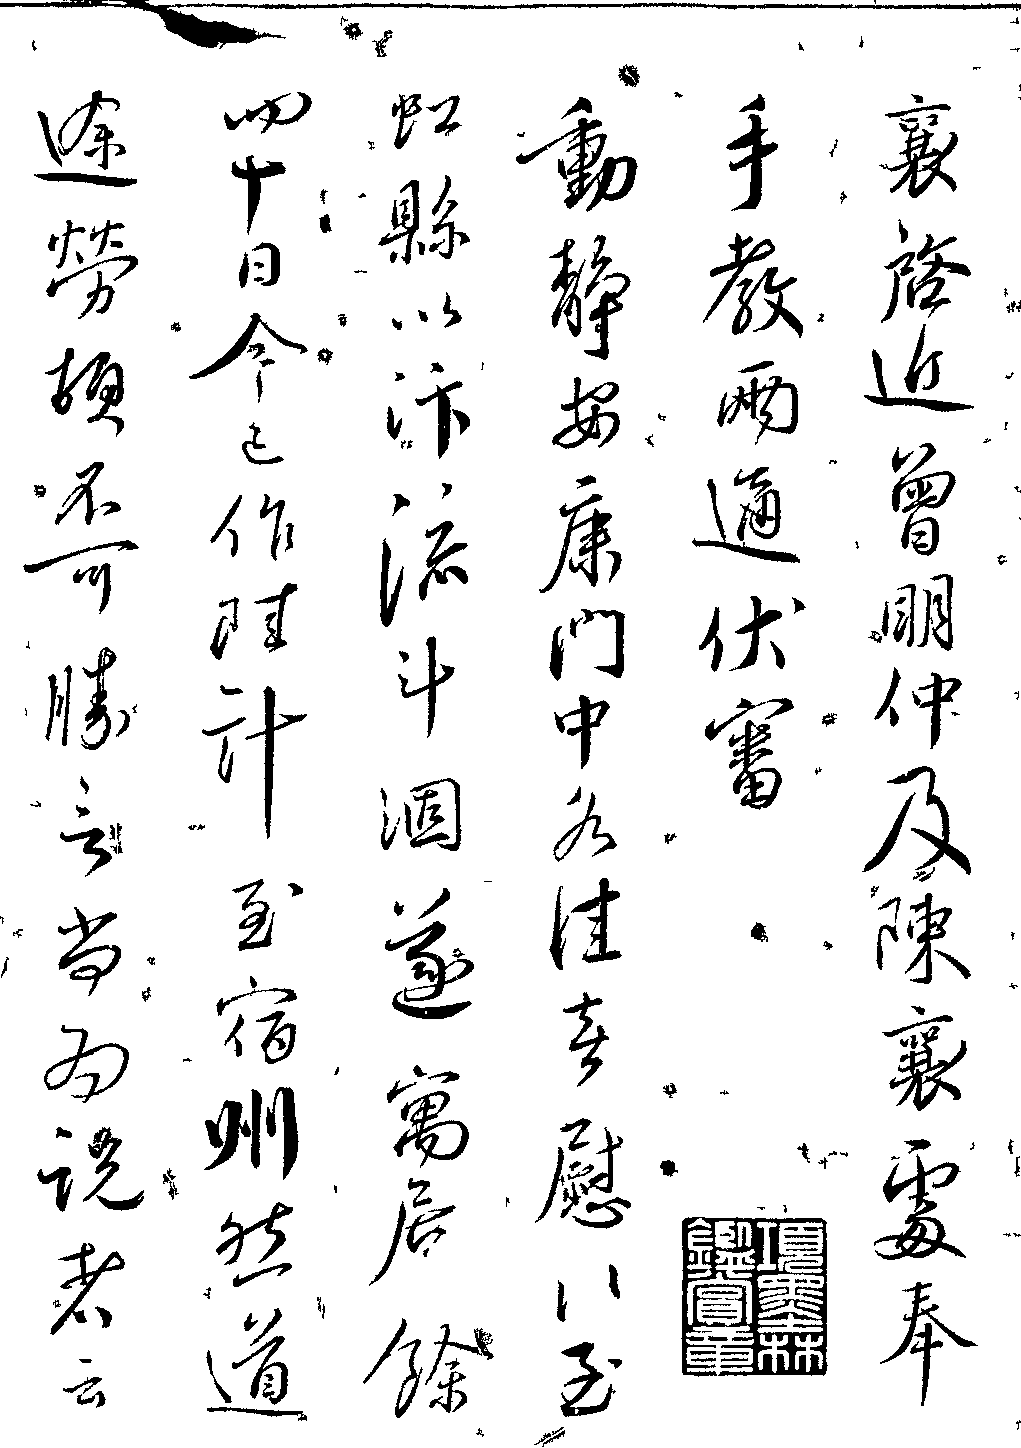 襄啓近曾明仲及陳襄處奉
手教兩通伏審
動靜安康門中各佳喜慰以至
虹縣以汴流斗涸遂寓居餘
四十日今已作陸計至宿州然道
途勞頓不可勝言尚為説者云
項墨林鑑賞章